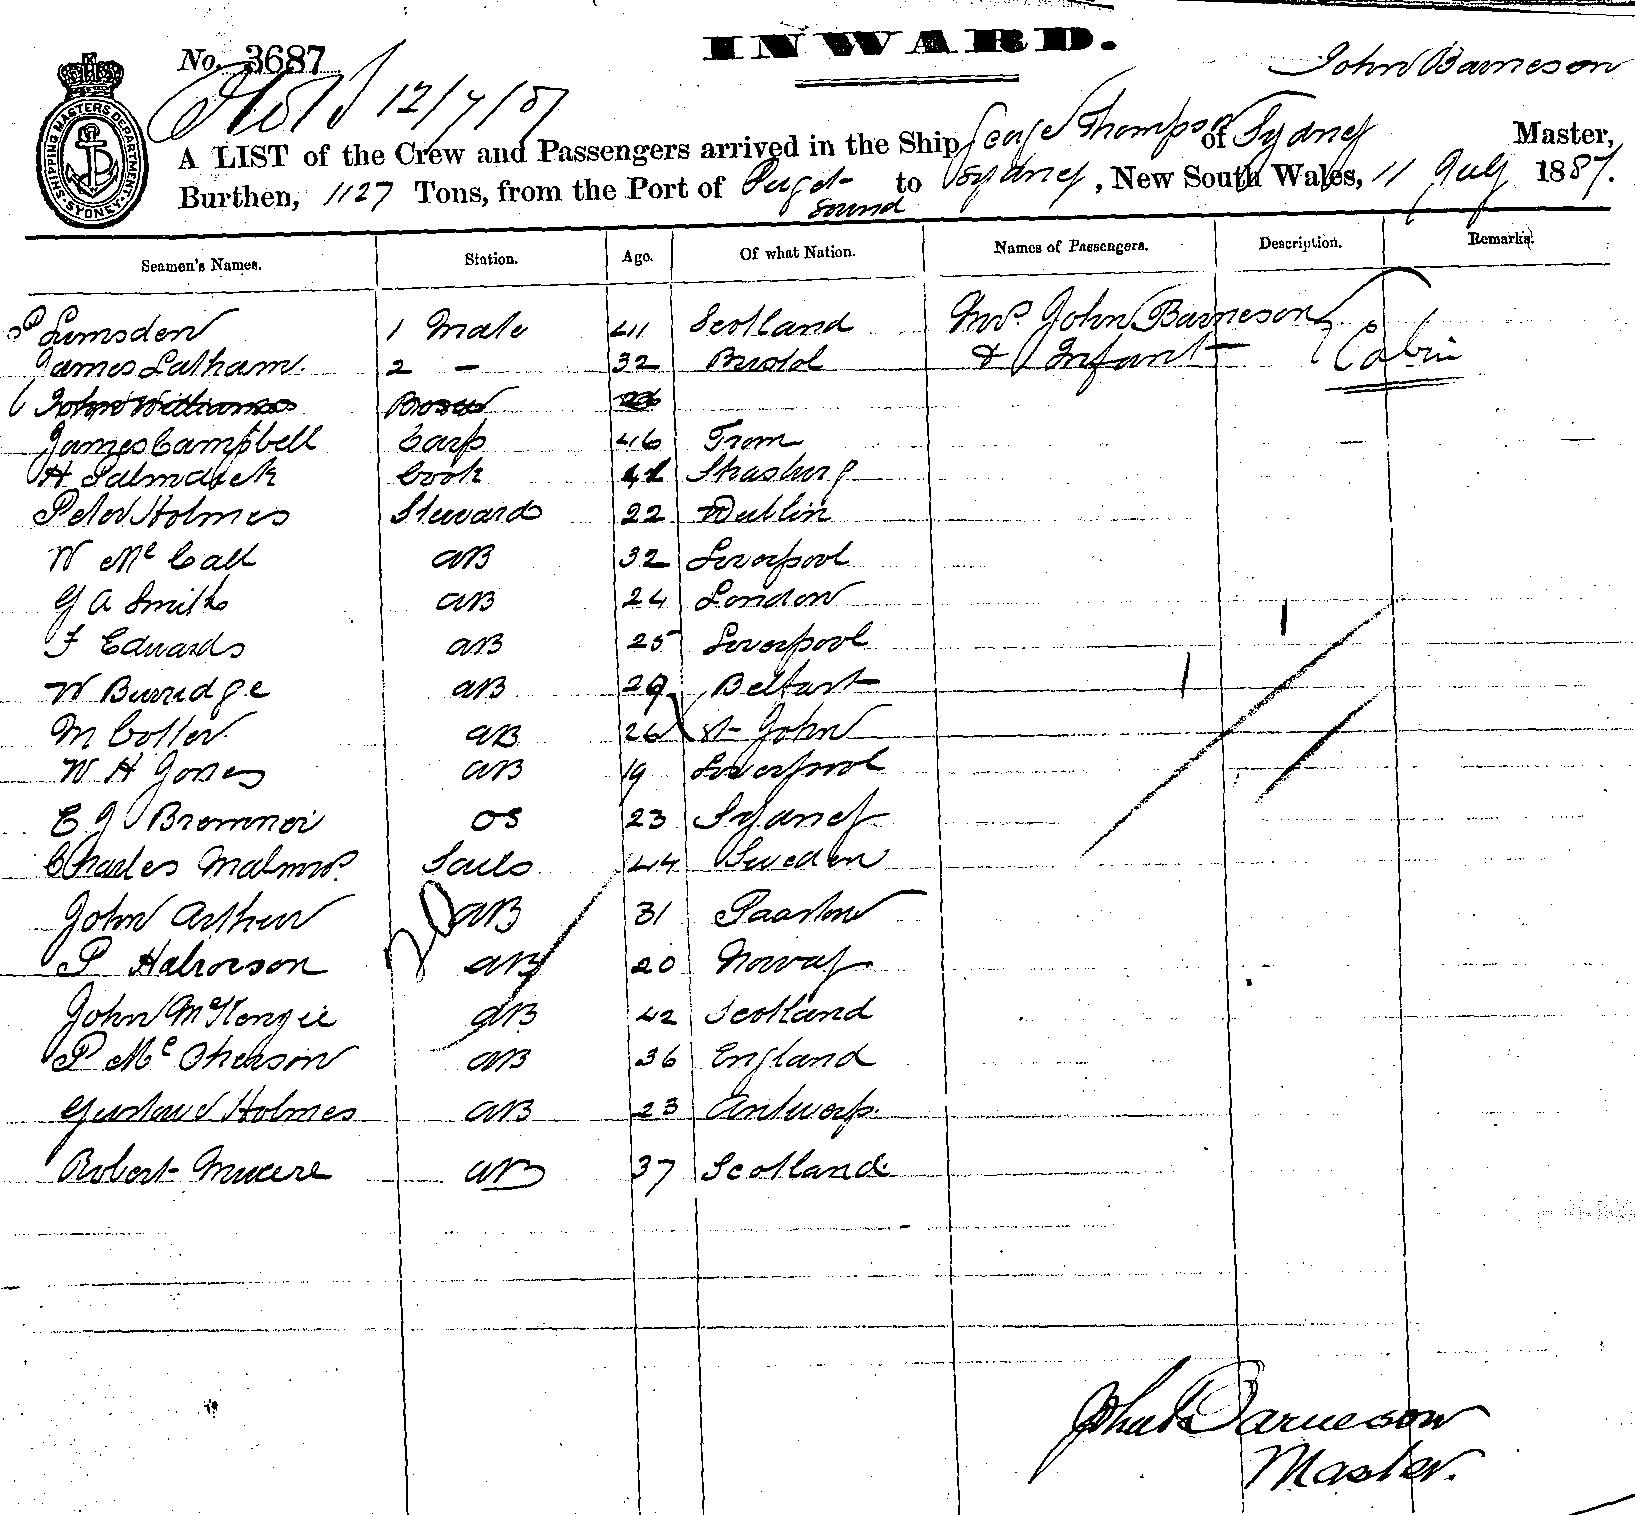 INWARD.
No. 3687
John Barneson
12/7/87
SHIPPING MASTERS DEPARTMENT SYDNEY
A LIST of the Crew and Passengers arrived in the Ship George Thompson of Sydney Master,
Burthen, 1127 Tons, from the Port of Puget Sound to Sydney, New South Wales, 11 July 1887.
Seamen's Names. Station. Age. Of what Nation. Names of Passengers. Description. Remarks.
P Lumsden 1 Mate 41 Scotland Mrs. John Barneson
James Latham. 2 - 32 Bristol & Infant Cabin
John Williams Bosun 26
James Campbell Carp 46 Troon
H Cook
Peter Holmes Steward 22 Dublin
W Mc Call AB 32 Liverpool
G A Smith AB 24 London
F Edwards AB 25 Liverpool
W Burridge AB 29 Belfast
M Cotter AB 26 St John
W H Jones AB 19 Liverpool
E J Bremner OS 23 Sydney
Charles Sails 44 Sweden
John Arthur AB 31
P Halvorson AB 20 Norway
John McKenzie AB 42 Scotland
P Mc Pherson AB 36 England
Gustave Holmes AB 23 Antwerp.
Robert AB 37 Scotland.
20
John Barneson
Master.